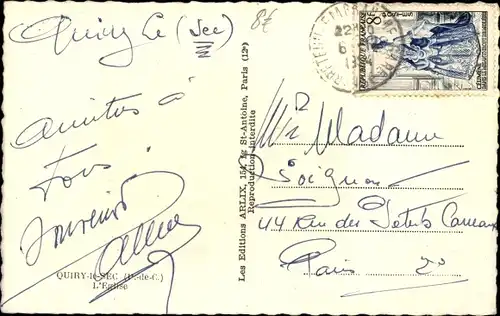 Quiry Le (Sec)
8€
Amitiés à
Tous
Souvenirs
QUIRY-le-SEC (P.-de-C.)
L'Eglise
Les Editions ARLIX, 154, Fg St-Antoine, Paris (12e)
Reproduction interdite
Mr Madame
Soignon
44 Rue des Petits Carreaux
Paris